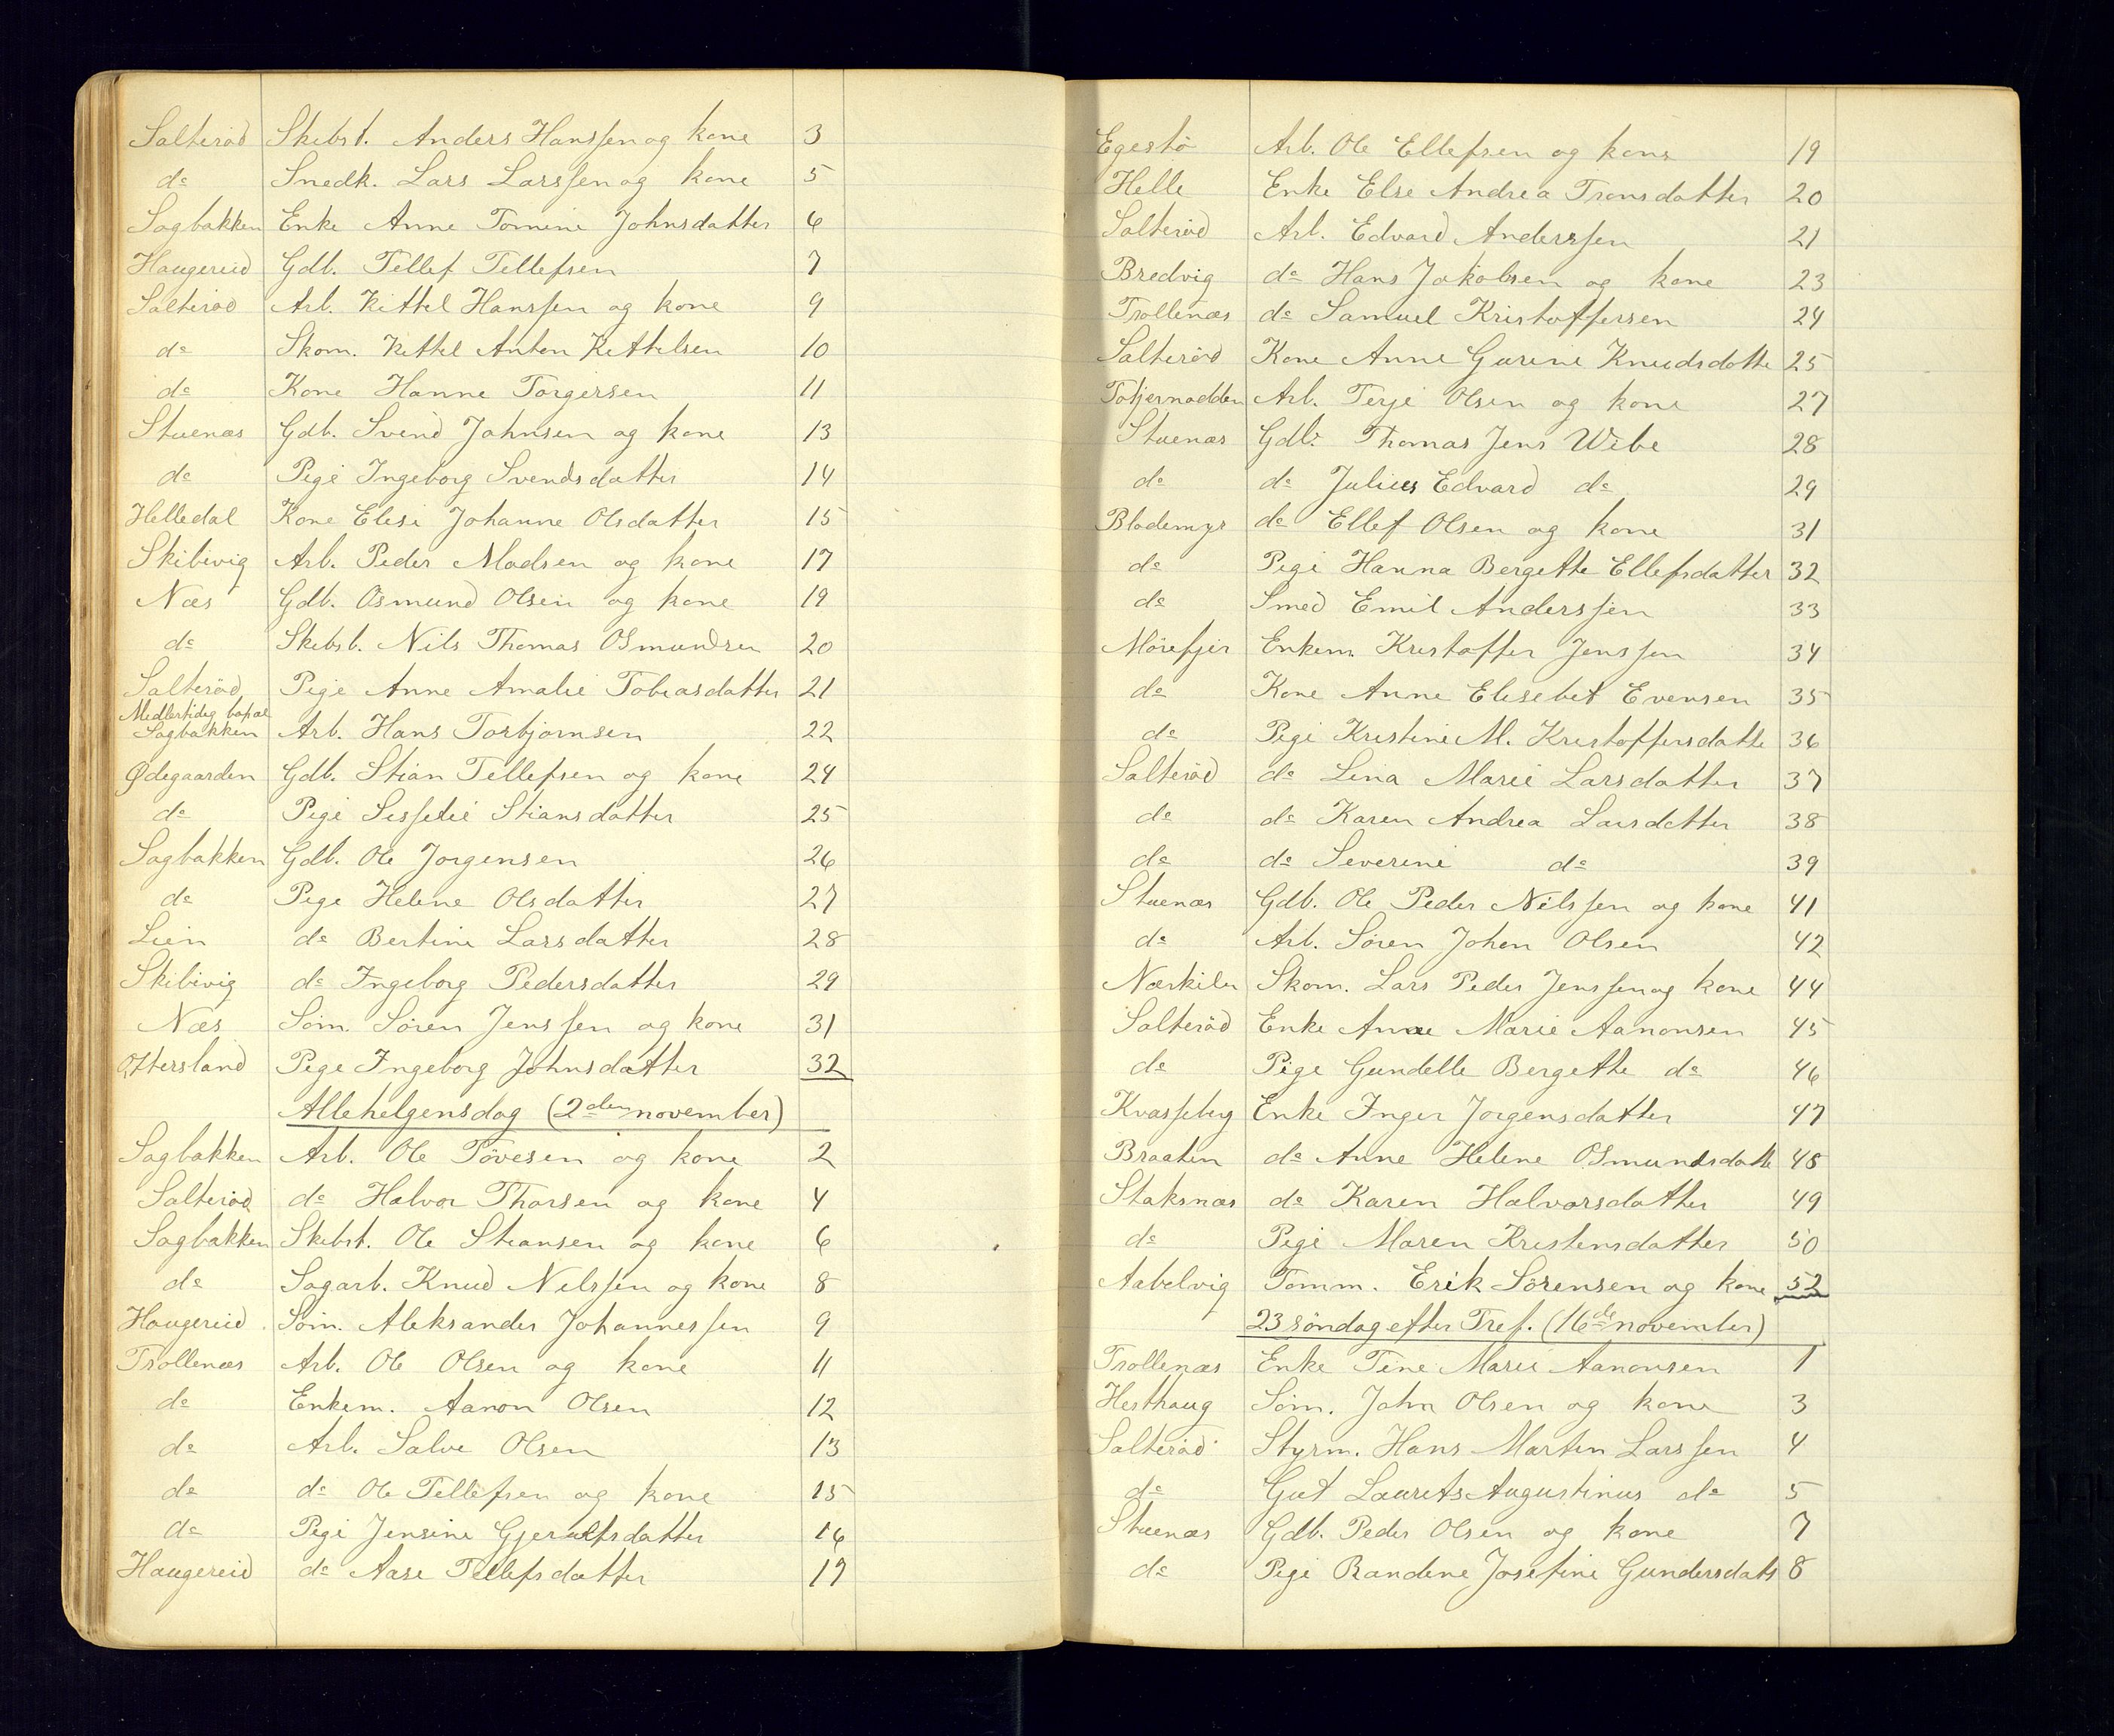 Salteröd Skibst. Anders Hanssen og kone 3
do Snedk. Lars Larssen og kone 5
Sagbakken Enke Anne Tomine Johnsdatter 6
Haugereid Gdb. Tellef Tellefsen 7
Salteröd Arb. Kittel Hanssen og kone 9
do Skom. Kittel Anton Kittelsen 10
do Kone Hanne Torgersen 11
Stuenæs Gdb. Svend Johnsen og kone 13
do Pige Ingeborg Svendsdatter 14
Helledal Kone Elesi Johanne Olsdatter 15
Skibivig Arb. Peder Madsen og kone 17
Næs Gdb. Osmund Olsen og kone 19
do Skibst. Nils Thomas Osmundsen 20
Salteröd Pige Anne Amalie Tobiasdatter 21
Medlertidig
Sagbakken Arb. Hans Torbjornsen 22
Ødegaarden Gdb. Stian Tellefsen og kone 24
do Pige Sisselie Stiansdatter 25
Sagbakken Gdb. Ole Jorgensen 26
do Pige Helene Olsdatter 27
Lien do Bertine Larsdatter 28
Skibivig do Ingeborg Pedersdatter 29
Næs Söm. Sören Jenssen og kone 31
Ottersland Pige Ingeborg Johnsdatter 32
Allehelgensdag (2den november)
Sagbakken Arb. Ole Tövesen og kone 2
Salteröd do Halvor Thorsen og kone 4
Sagbakken Skibst. Ole Stiansen og kone 6
do Sagarb. Knud Nilssen og kone 8
Haugereid Söm. Aleksander Johannessen 9
Trollenæs Arb. Ole Olsen og kone 11
do Enkem. Aanon Olsen 12
do Arb. Salve Olsen 13
do do Ole Tellefsen og kone 15
do Pige Jensine Gjerulfsdatter 16
Haugereid do Aase Tellefsdatter 17
Egestö Arb. Ole Ellefsen og kone 19
Helle Enke Else Andrea Tronsdatter 20
Salteröd Arb. Edvard Anderssen 21
Bredvig do Hans Jakobsen og kone 23
Trollenæs do Samuel Kristoffersen 24
Salteröd Kone Anne Gurine Knudsdatte 25
Töhjernodden Arb. Terje Olsen og kone 27
Stuenæs Gdb. Thomas Jens Wibe 28
do do Julius Edvard do 29
Blodemyr do Ellef Olsen og kone 31
do Pige Hanna Bergette Ellefsdatter 32
do Smed Emil Anderssen 33
Mörefjer Enkem. Kristoffer Jenssen 34
do Kone Anne Elesebet Evensen 35
do Pige Kristine M. Kristoffersdatte 36
Salteröd do Lina Marie Larsdatter 37
do do Karen Andrea Larsdatter 38
do do Severine do 39
Stuenæs Gdb. Ole Peder Nilssen og kone 41
do Arb. Sören Johan Olsen 42
Næskilen Skom. Lars Peder Jenssen og kone 44
Salteröd Enke Anne Marie Aanonsen 45
do Pige Gundelle Bergette do 46
Kvasseberg Enke Inger Jorgensdatter 47
Braaten do Anne Helene Osmundsdatte 48
Staksnæs do Karen Halvorsdatter 49
do Pige Maren Kristensdatter 50
Aabelvig Tömm. Erik Sörensen og kone 52
23 söndag efter Tref. (16de november)
Trollenæs Enke Tine Marie Aanonsen 1
Hesthaug Söm. John Olsen og kone 3
Salteröd Styrm. Hans Martin Larssen 4
do Gut Laurits Augustinus do 5
Stuenæs Gdb. Peder Olsen og kone 7
do Pige Randine Josefine Gundersdats 8